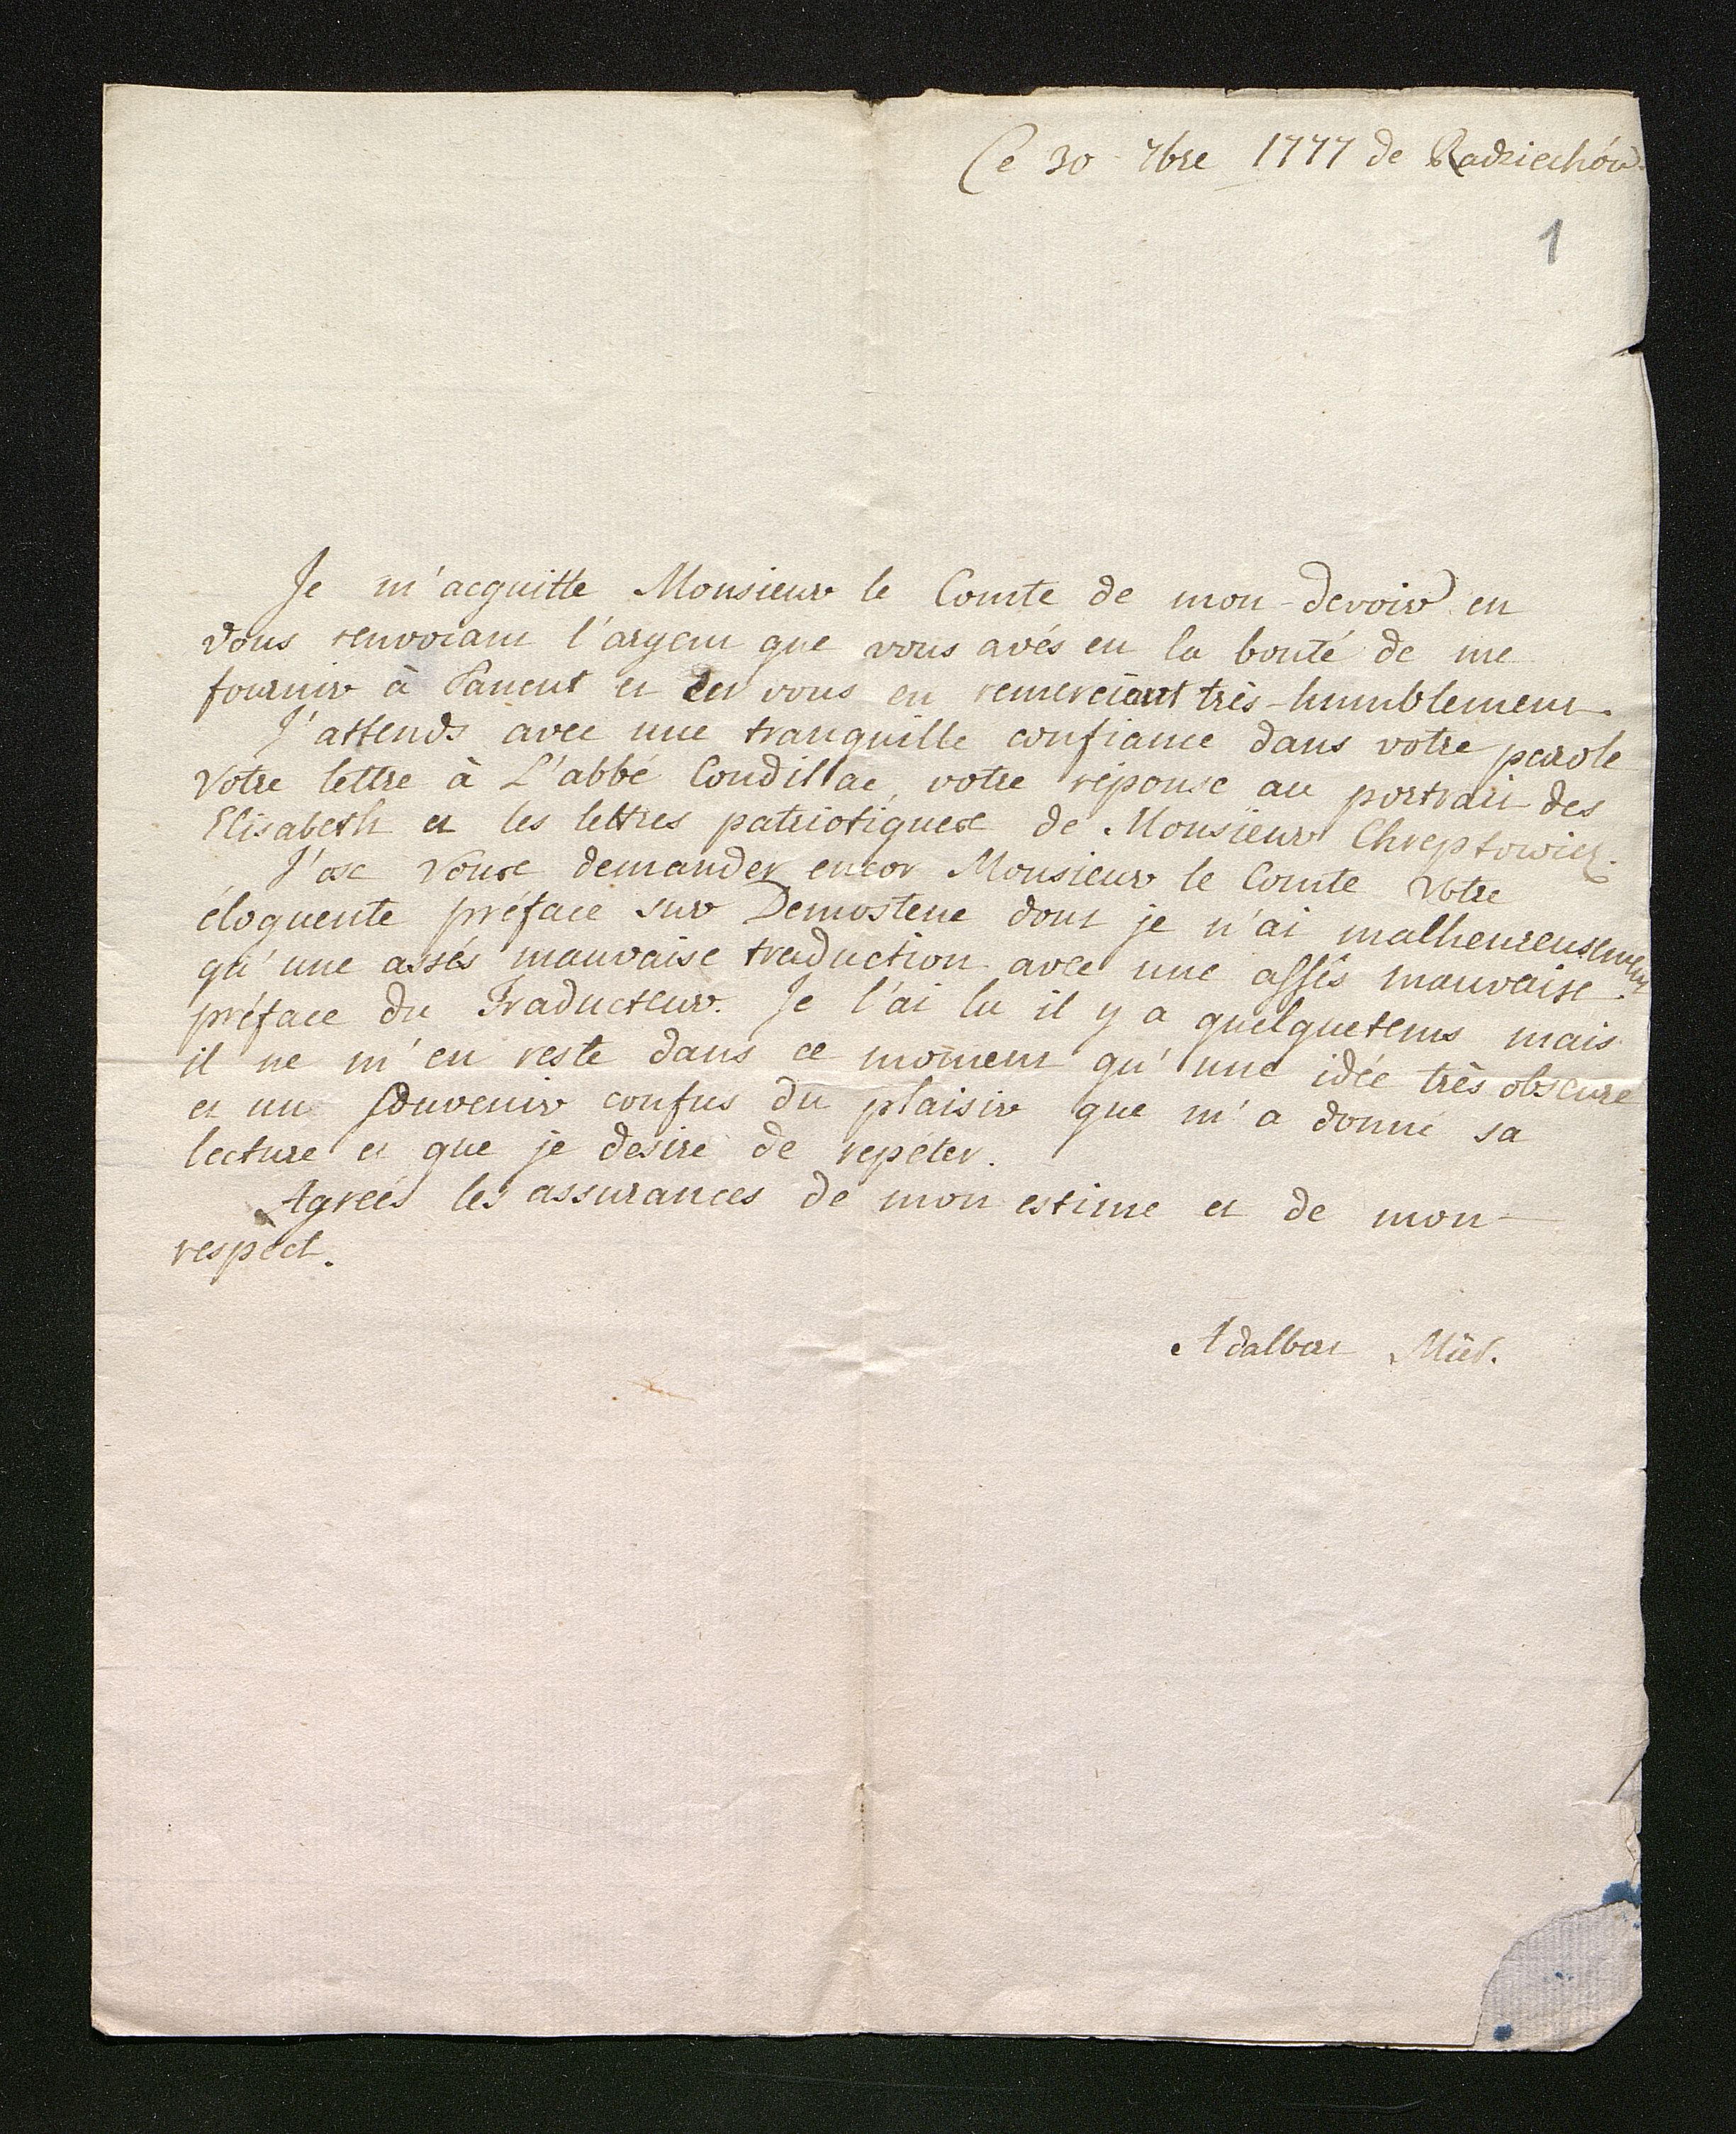 Ce 30 7bre 1777 de Radziechów
1
Je m'acquitte Monsieur le Comte de mon devoir en
vous renvoiant l'argent que vous avés eu la bonté de me
fournir à Lancut et en vous en remerciant très-humblement.
J'attends avec une tranquille confiance dans votre parole
Votre lettre à L'abbé Condillac, votre réponse au portrait des
Elisabeth et les lettres patriotiques de Monsieur Chreptowicz.
J'ose Vous demander encor Monsieur le Comte Votre
éloquente préface sur Demostene dont je n'ai malheureusement
qu'une assés mauvaise traduction avec une assés mauvaise
préface du Traducteur. Je l'ai lu il y a quelquetems mais
il ne m'en reste dans ce moment qu'une idée très obscure
et un souvenir confus du plaisir que m'a donné sa
lecture et que je desire de repéter.
Agreés les assurances de mon estime et de mon
respect.
Adalbert Mier.